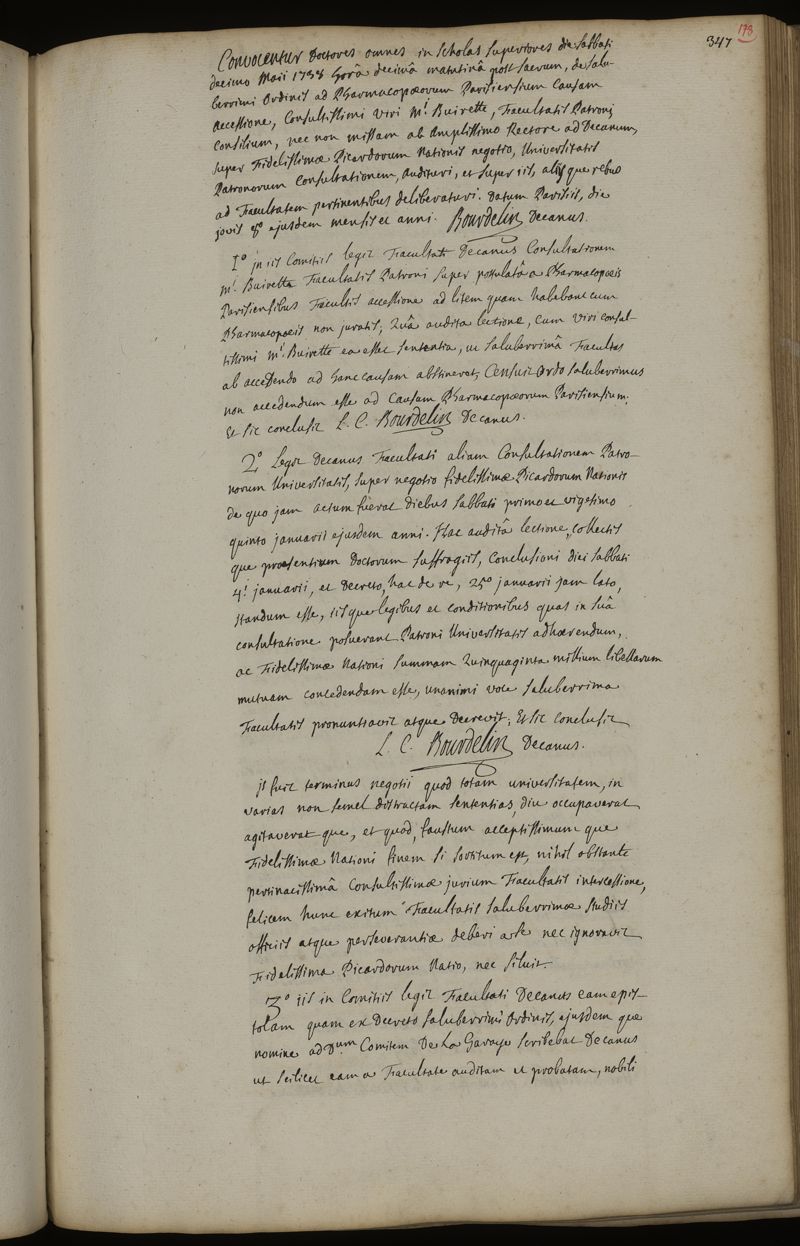 347
173
Convocentur Doctores omnes in scholas superiores die sabbati
decimo Maii 1738 horâ decimâ matutinâ post sacrum, de salu-
berrimi Ordinis ad Pharmacopœorum Parisiensium Causam
Accessione, Consultissimi viri Mri Buirette, Facultatis Patroni
Consilium, nec non missam ab Amplissimo Rectore ad Decanum,
super Fidelissimæ Picardorum Nationis negotio, Universitatis
Patronorum Consultationem, audituri, et super iis, aliisque rebus
ad Facultatem pertinentibus deliberaturi. Datum Parisiis, die
jovis 8o ejusdem mensis et anni. Bourdelin Decanus.
1o in iis Comitiis legit Facultati Decanus Consultationem
Mri Buirette Facultatis Patroni super postulatâ a Pharmacopœis
Parisiensibus Facultatis accessione ad litem quam habebant cum
Pharmacopœis non juratis; Quâ auditâ lectione, cum viri consul-
tissimi Mri Buirette ea esset sententia, ut saluberrima Facultas
ab accedendo ad hanc causam abstineret, Censuit Ordo saluberrimus
non accedendum esse ad Causam Pharmacopœorum Parisiensium.
Et sic conclusit L. C. Bourdelin Decanus.
2o Legit Decanus Facultati aliam Consultationem Patro-
norum Universitatis, super negotio fidelissimæ Picardorum Nationis
de quo jam actum fuerat diebus sabbati primo et vigesimo
quinto januarii ejusdem anni. Hac auditâ lectione, collectis
que præsentium Doctorum suffragiis, Conclusioni diei sabbati
4i januarii, et Decreto, hac de re, 25o januarii jam lato,
standum esse, iisque legibus et conditionibus quas in suâ
consultatione posuerant Patroni Universitatis adhærendum,
ac Fidelissimæ Nationi summam Quinquaginta millium libellarum
mutuam concedendam esse, unanimi voce saluberrima
Facultatis pronuntiavit atque Decrevit; Et sic conclusit
L. C. Bourdelin Decanus.
is fuit terminus negotii quod totam universitatem, in
varias non semel distractam sententias, diu occupaverat
agitaverat que, et quod, faustum acceptissimum que
Fidelissimæ Nationi finem si sortitum est, nihil obstante
pertinacissimâ Consultissimæ jurium Facultatis intercessione,
felicem hunc exitum Facultatis saluberrimæ studiis
officiis atque perseverantiæ deberi a se nec ignoravit
Fidelissima Picardorum Natio, nec siluit.
3o iis in Comitiis legit Facultati Decanus eam epis-
tolam quam ex Decreto saluberrimi Ordinis, ejusdem que
nomine ad Dum Comitem De La Garaye scribebat Decanus
ut scilicet eam a Facultate auditam et probatam, nobili